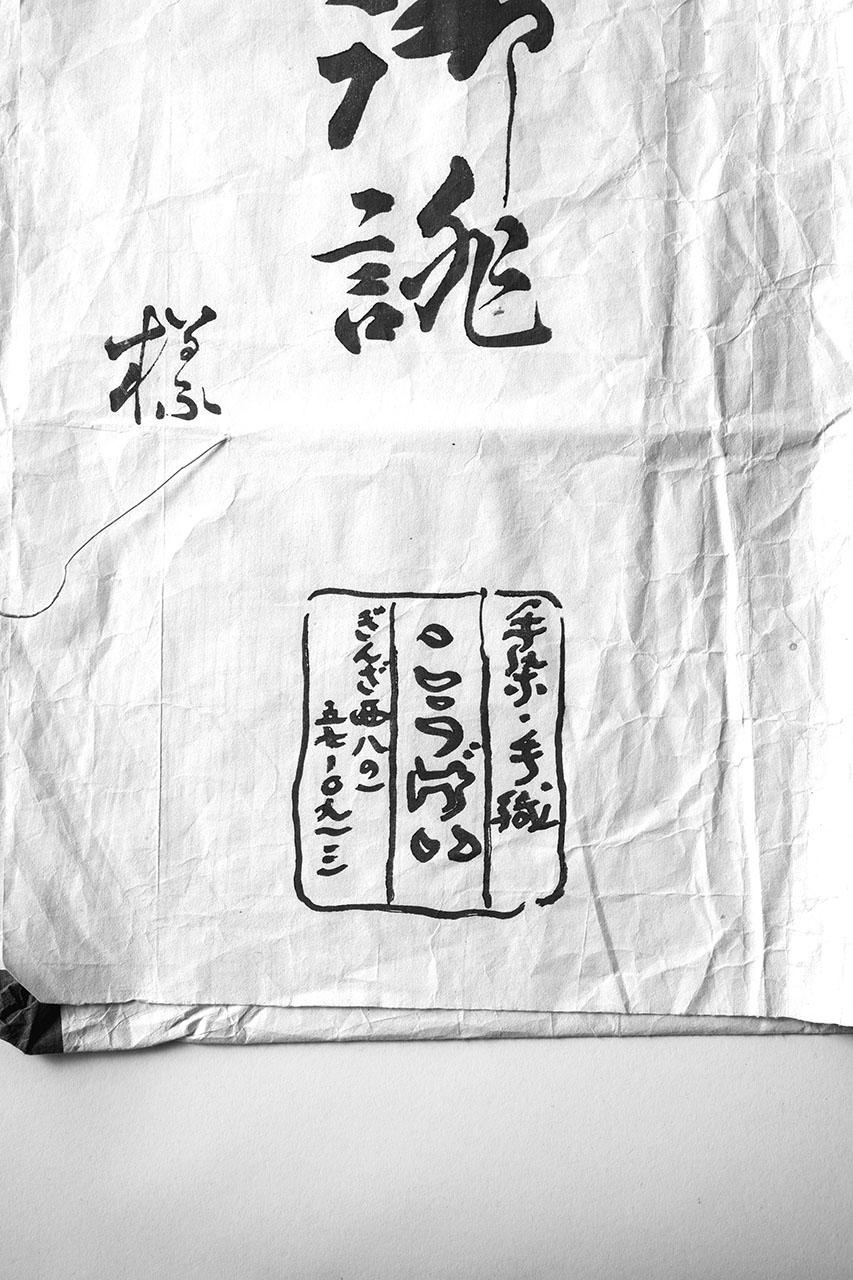 御誂
様
手染・手織
こうげい
ぎんざ西八の一
五七一〇九一三